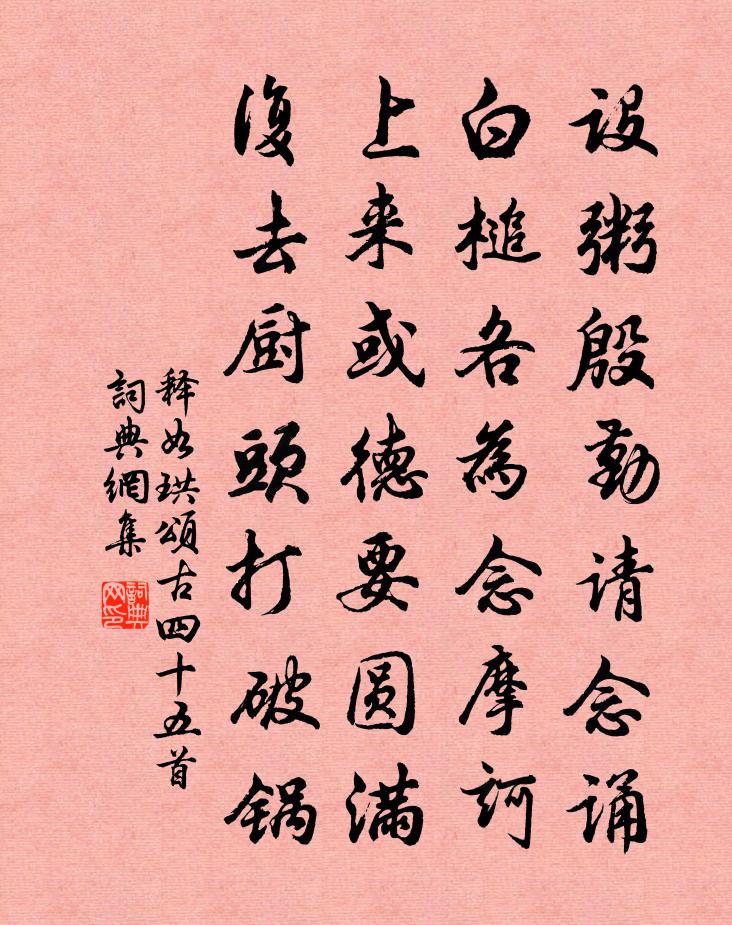 设粥殷勤请念诵
白槌各为念摩訶
上来或德要圆满
復去厨頭打破锅
释如珙頌古四十五首
詞典網集
詞典网印